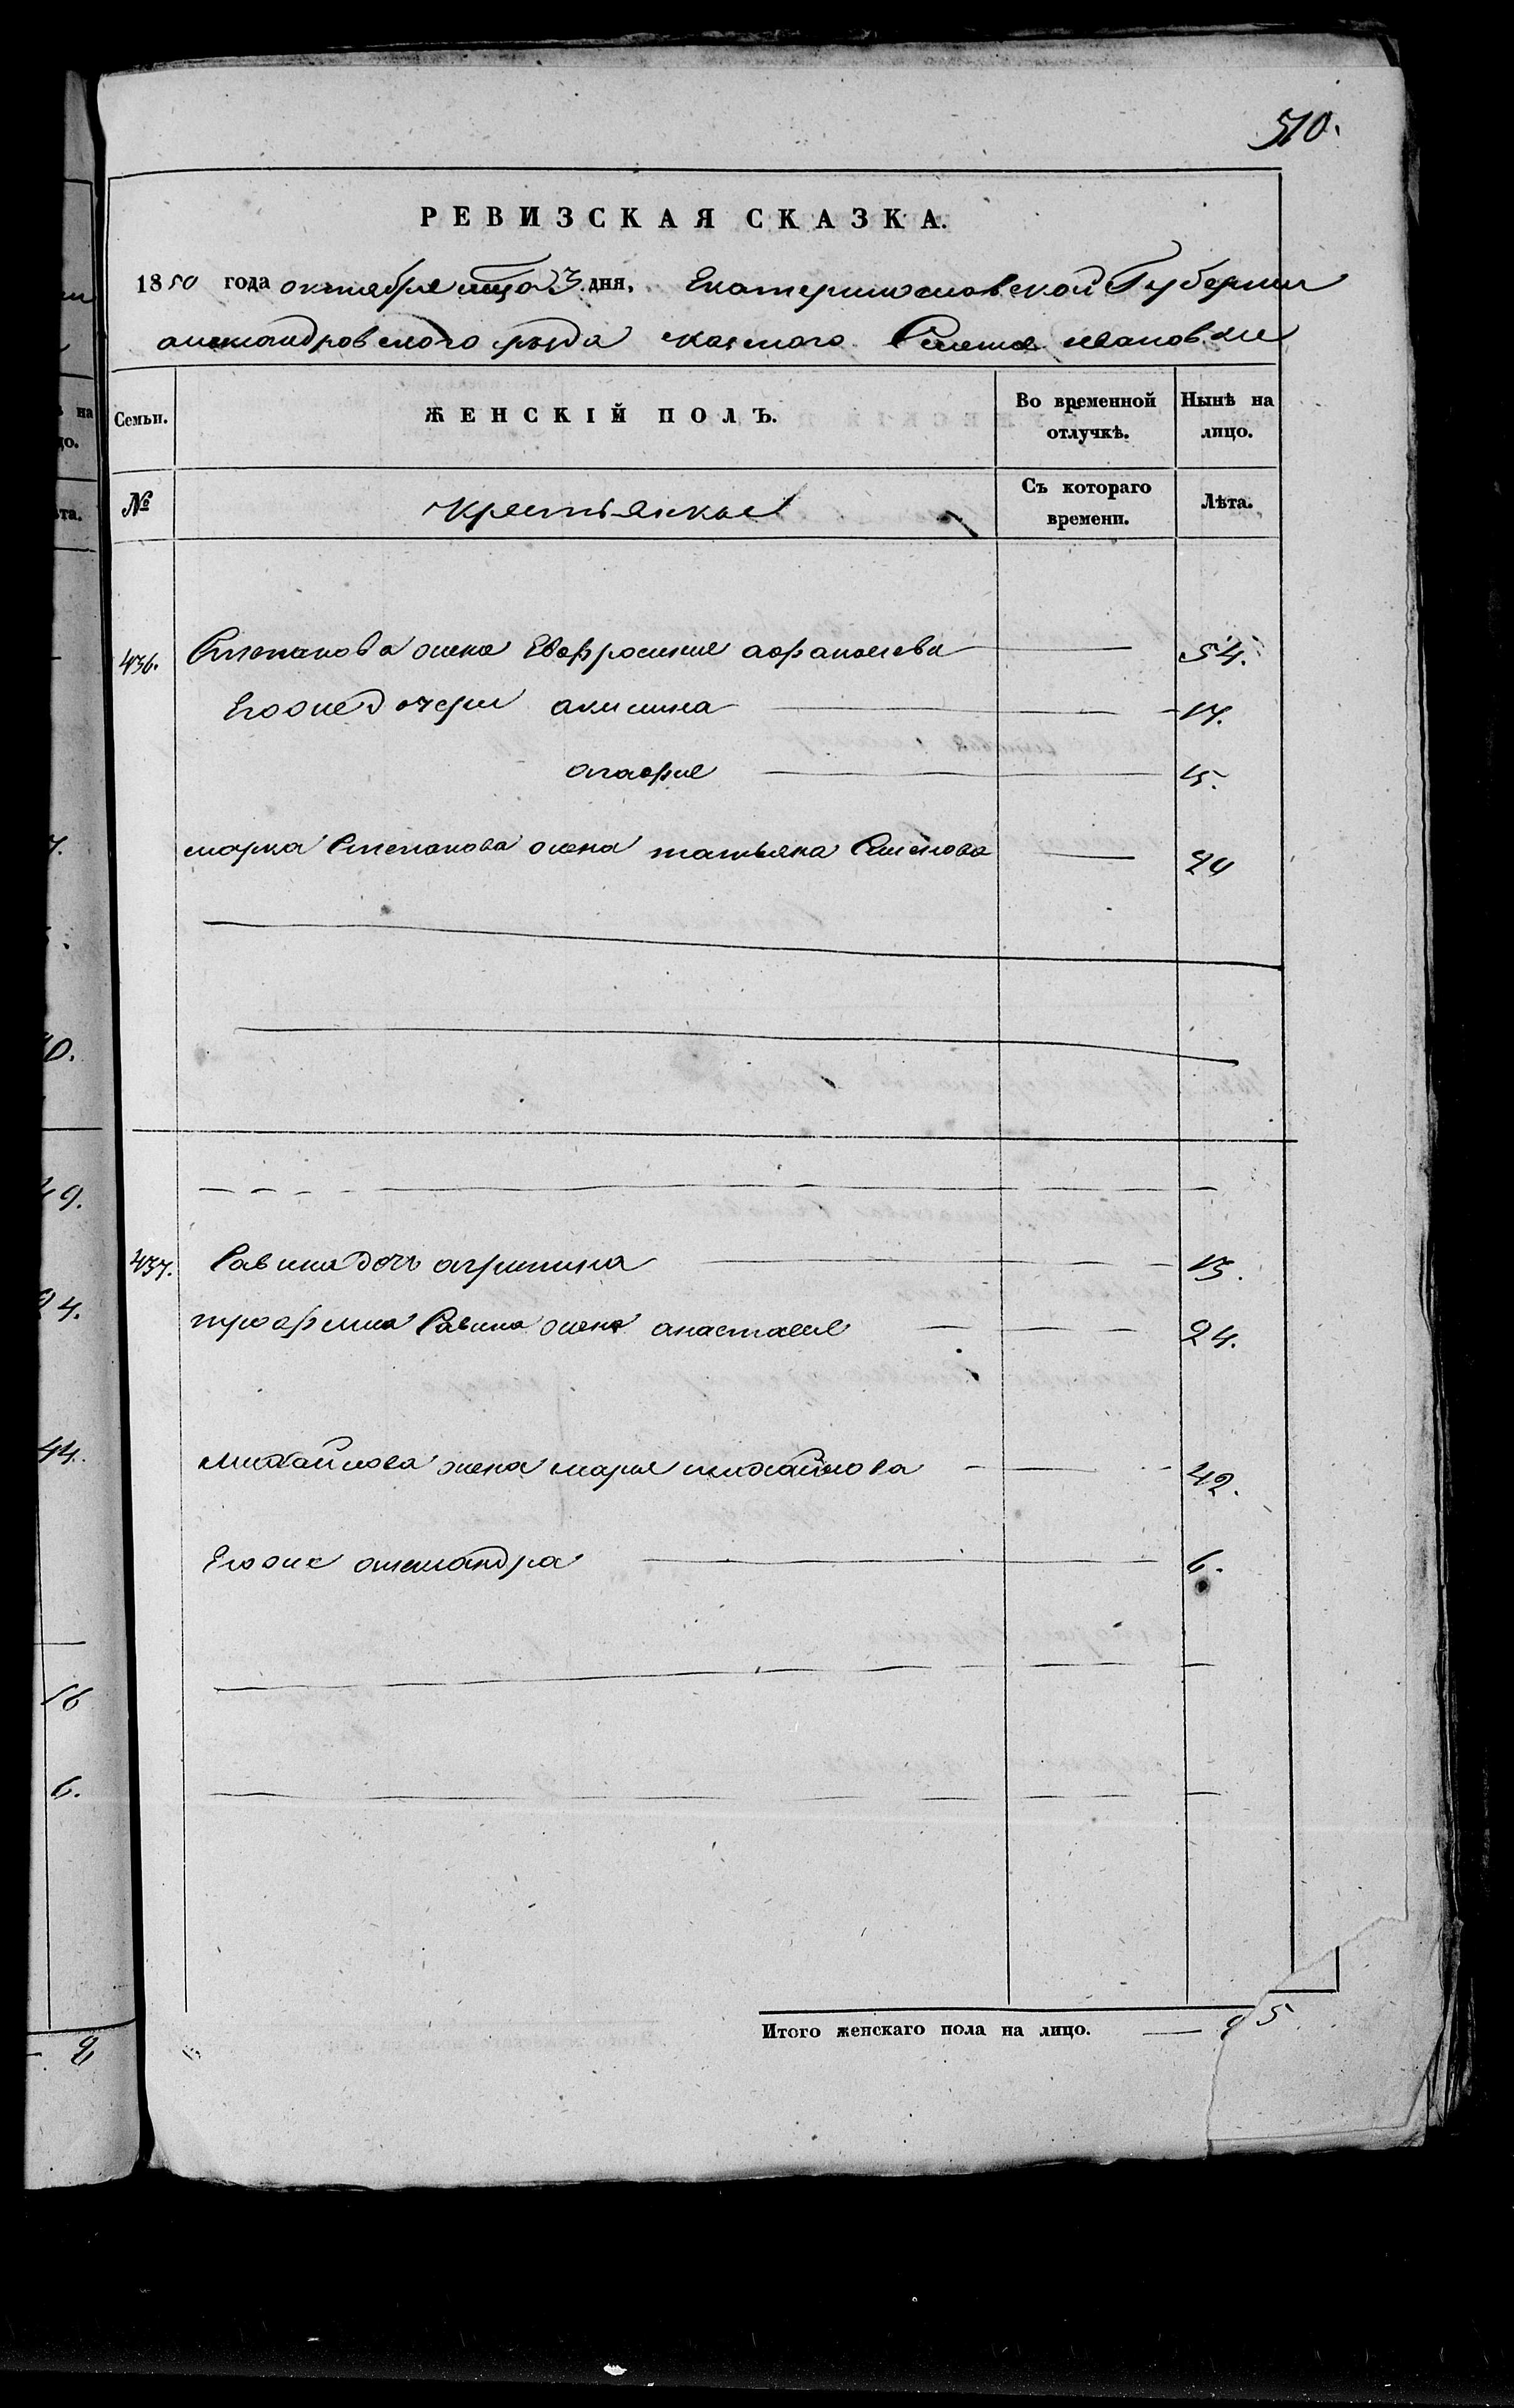 510.
РЕВИЗСКАЯ СКАЗКА.
1850 года октября мца 3 дня, Екатеринославской Губернии
александровского уезда казеного Селения ивановки
Семьи.
ЖЕНСКІЙ ПОЛЪ.
Во временной отлучкѣ.
Нынѣ на лицо.
№
крестьянкы
Съ котораго времени.
Лѣта.
436. Степанова жена Евфросиния афанасева 54.
Егоже дочери акилина 17.
агафия 15.
марка Степанова жена татьяна Семенова 24
437. Савина дочь агрипина 13.
трофима Савина жена анастасия 24.
михайлова жена мария михайлова 42.
Егоже александра 6.
Итого женскаго пола на лицо.